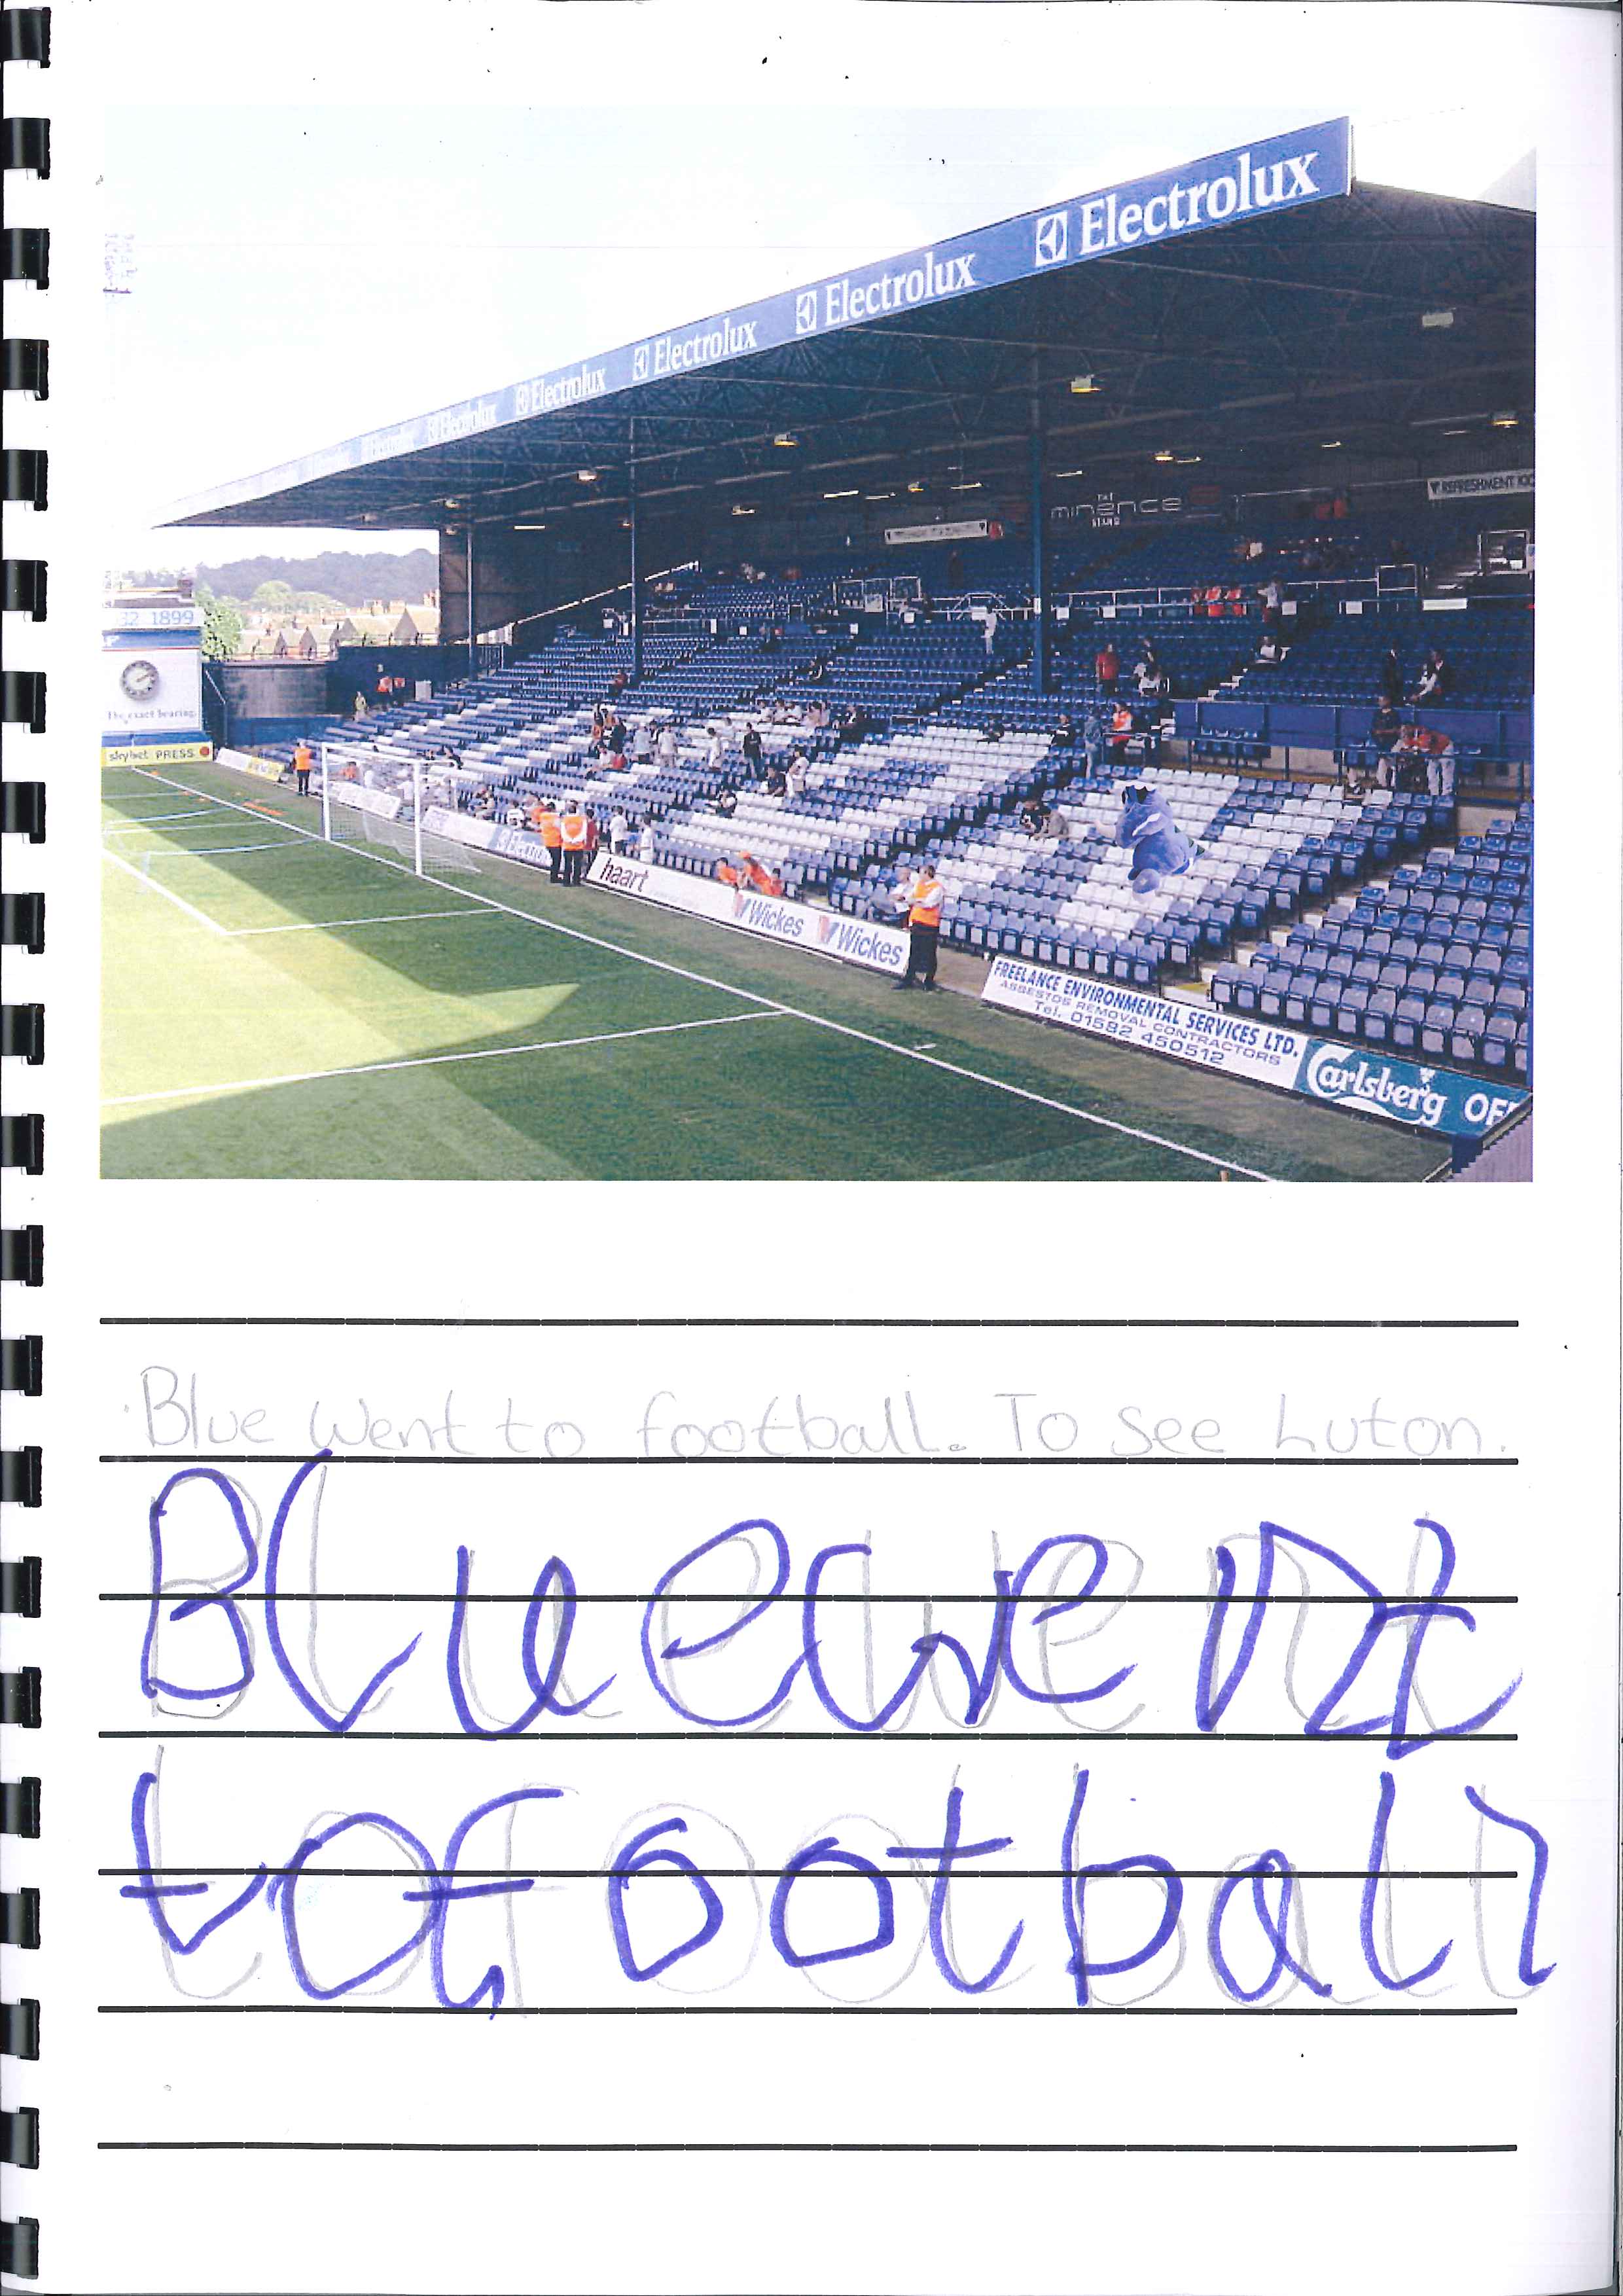 Electrolux
Electrolux
Electrolux
Electrolux
Electrolux
REFRESHMENT
STAND
32 1899
The exact bearing.
skybet PRESS
haart
Wickes
Wickes
FREELANCE ENVIRONMENTAL SERVICES LTD.
ASBESTOS REMOVAL CONTRACTORS
Tel. 01582 450512
Carlsberg OF
Blue went to football. To see Luton.
Blue went
to football